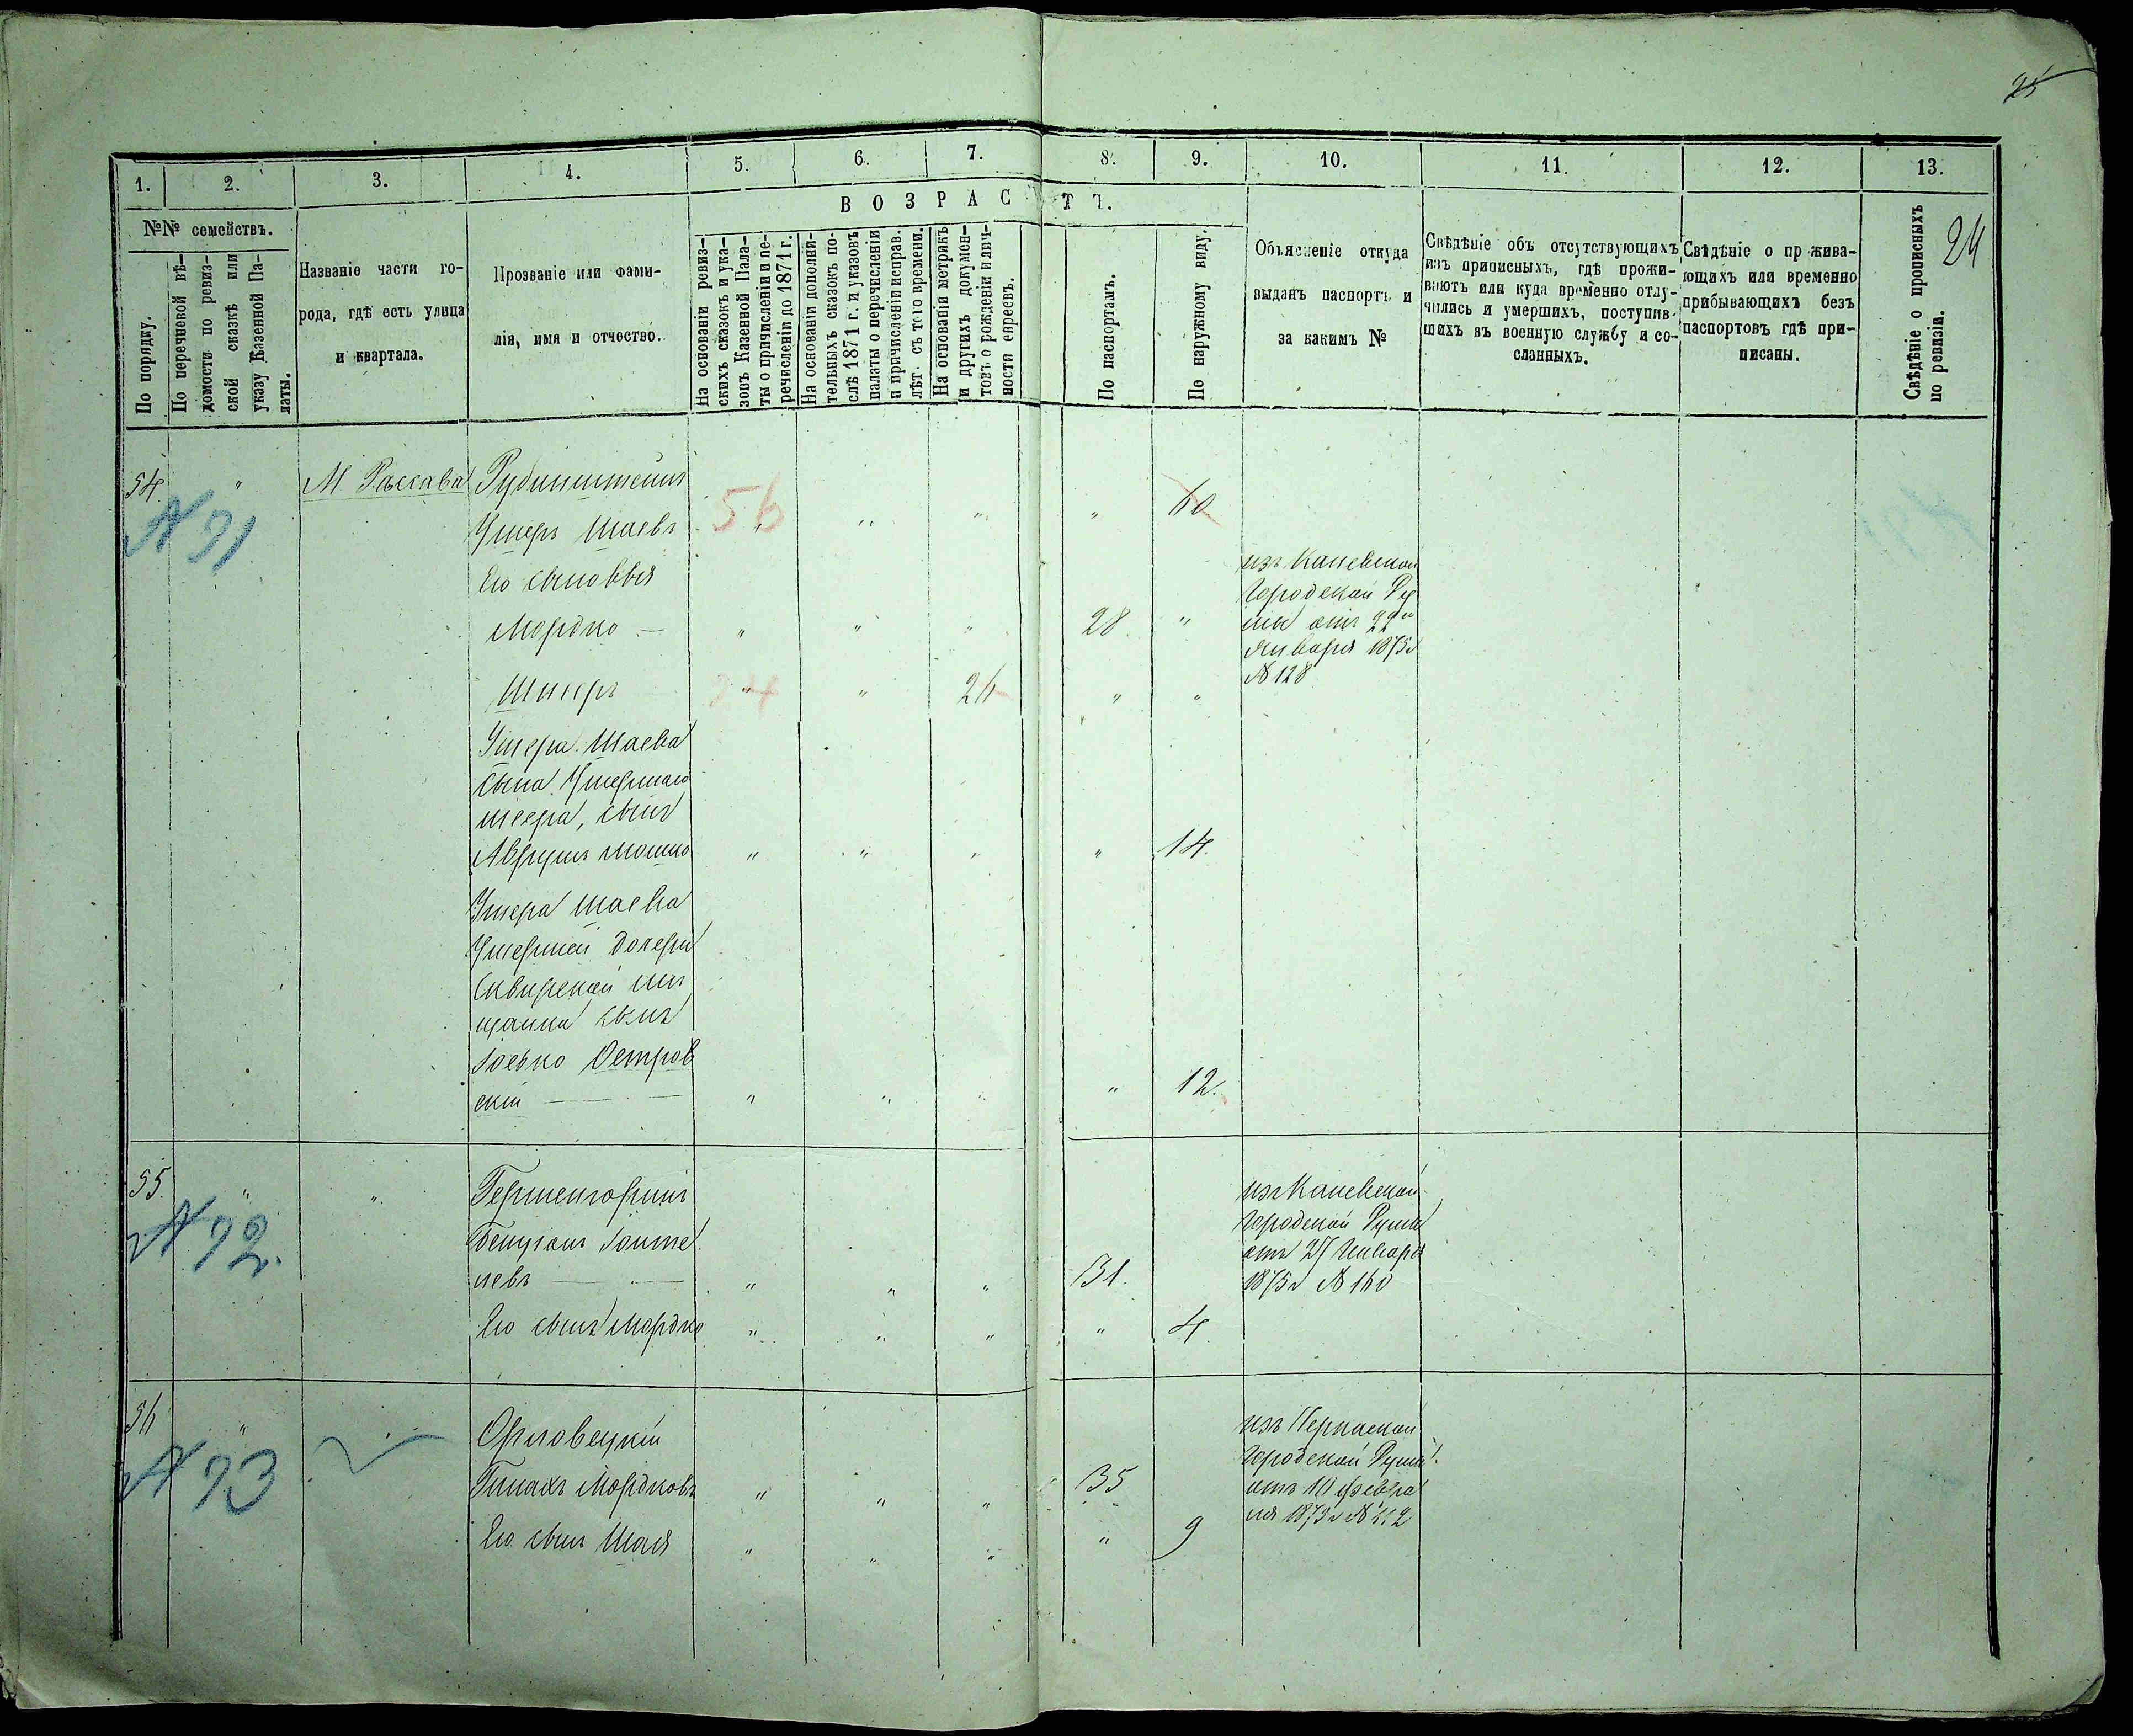 25
1. 2. 3. 4. 5. 6. 7. 8. 9. 10. 11. 12. 13.
№№ семействъ.
По порядку.
По перечневой вѣ-
домости по ревиз-
ской сказкѣ или
указу Казенной Па-
латы.
Названіе части го-
рода, гдѣ есть улица
и квартала.
Прозваніе или фами-
лія, имя и отчество.
ВОЗРАСТЪ.
На основаніи ревиз-
скихъ сказокъ и ука-
зовъ Казенной Пала-
ты о причисленіи и пе-
речисленіи до 1871 г.
На основаніи дополни-
тельныхъ сказокъ по-
слѣ 1871 г. и указовъ
палаты о перечисленіи
и причисленіи исправ.
лѣт. съ того времени.
На основаніи метрикъ
и другихъ докумен-
товъ о рожденіи и лич-
ности евреевъ.
По паспортамъ.
По наружному виду.
Объясненіе откуда
выданъ паспортъ и
за какимъ №
Свѣдѣніе объ отсутствующихъ
изъ приписныхъ, гдѣ прожи-
ваютъ или куда временно отлу-
чились и умершихъ, поступив-
шихъ въ военную службу и со-
сланныхъ.
Свѣдѣніе о прожива-
ющихъ или временно
прибывающихъ безъ
паспортовъ гдѣ при-
писаны.
Свѣдѣніе о прописныхъ
по ревизіи.
24
54 " М Рассава Рубинштейнъ
N 91
Ушеръ Шаевъ 56 " " " " 60
Его сыновья
Мордко — " " " 28 "
изъ Каневской
Городской Ду
мы отъ 22го
Января 1875 г
№ 128
24 " " 26 " "
Ушера Шаева
сына Умершаго
Меера, сынъ
Аврумъ Мошко " " " " 14
Ушера Шаева
Умершей дочери
Сквирской мѣ
щанки сынъ
Іосько Остров
скій — — " " " " 12.
55 " "
N 92.
невъ — — " " " 31.
Его сынъ Мордко " " " " 4
изъ Каневской
Городской Думы
отъ 27 Января
1875 г № 160
56 "
N 93
Орловецкій
Пинахъ Мордковъ " " " 35
Его сынъ Шая " " " " 9
Городской Думы
отъ 10 февра